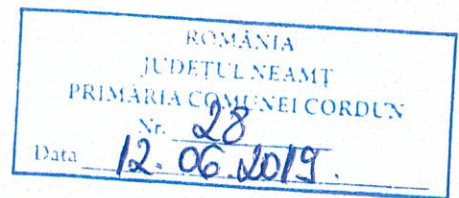 ROMÂNIA
JUDEŢUL NEAMŢ
PRIMĂRIA COMUNEI CORDUN
Nr. 28
Data 12. 06. 2019.